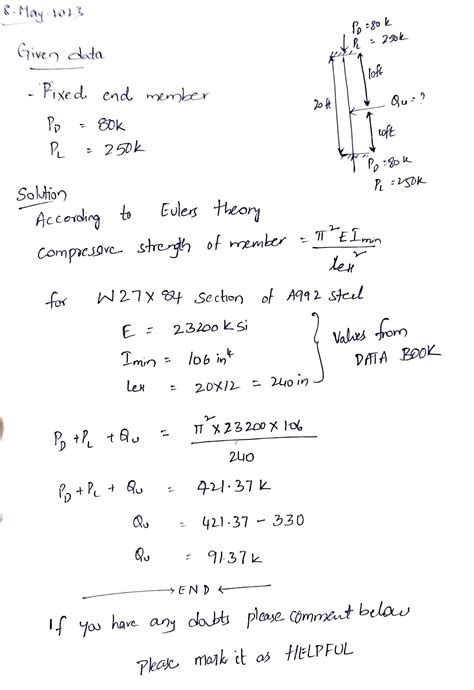 8. May. 2023
Given data
- Fixed end member
P_D = 80k
P_L = 250k
P_D = 80k
P_L = 250k
10ft
20ft
Q_u = ?
10ft
P_D = 80k
P_L = 250k
Solution
According to Eulers theory
compressive strength of member = π²EI_min / l_eff²
for W27×84 section of A992 steel
E = 23200 ksi
I_min = 106 in⁴
l_eff = 20×12 = 240 in
Values from
DATA BOOK
P_D + P_L + Q_u = π² × 23200 × 106 / 240
P_D + P_L + Q_u = 421.37 k
Q_u = 421.37 - 330
Q_u = 91.37 k
→ END ←
If you have any doubts please comment below
Please mark it as HELPFUL